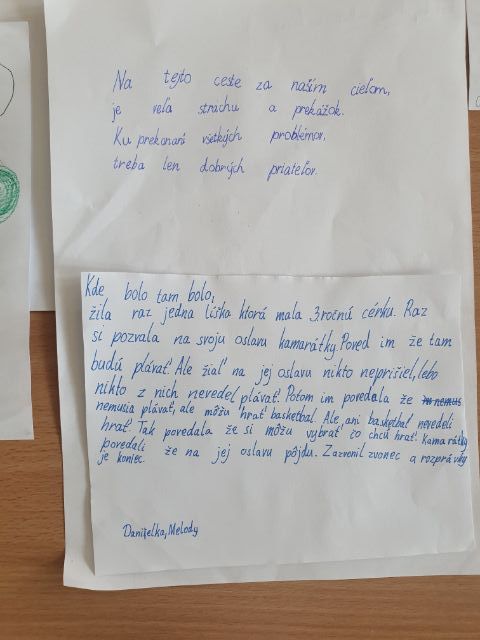 Na tejto ceste za naším cieľom,
je veľa strachu a prekážok.
Ku prekonaní všetkých problémov,
treba len dobrých priateľov.
Kde bolo tam bolo,
žila raz jedna líška ktorá mala 3.ročnú cérku. Raz
si pozvala na svoju oslavu kamarátky. Poved im že tam
budú plávať. Ale žiaľ na jej oslavu nikto neprišiel, lebo
nikto z nich nevedel plávať. Potom im povedala že
nemusia plávať, ale môžu hrať basketbal. Ale ani basketbal nevedeli
hrať. Tak povedala že si môžu vybrať čo chcú hrať. Kamarátky
povedali že na jej oslavu pôjdu. Zazvonil zvonec a rozprávky
je koniec.
Danijelka, Melody